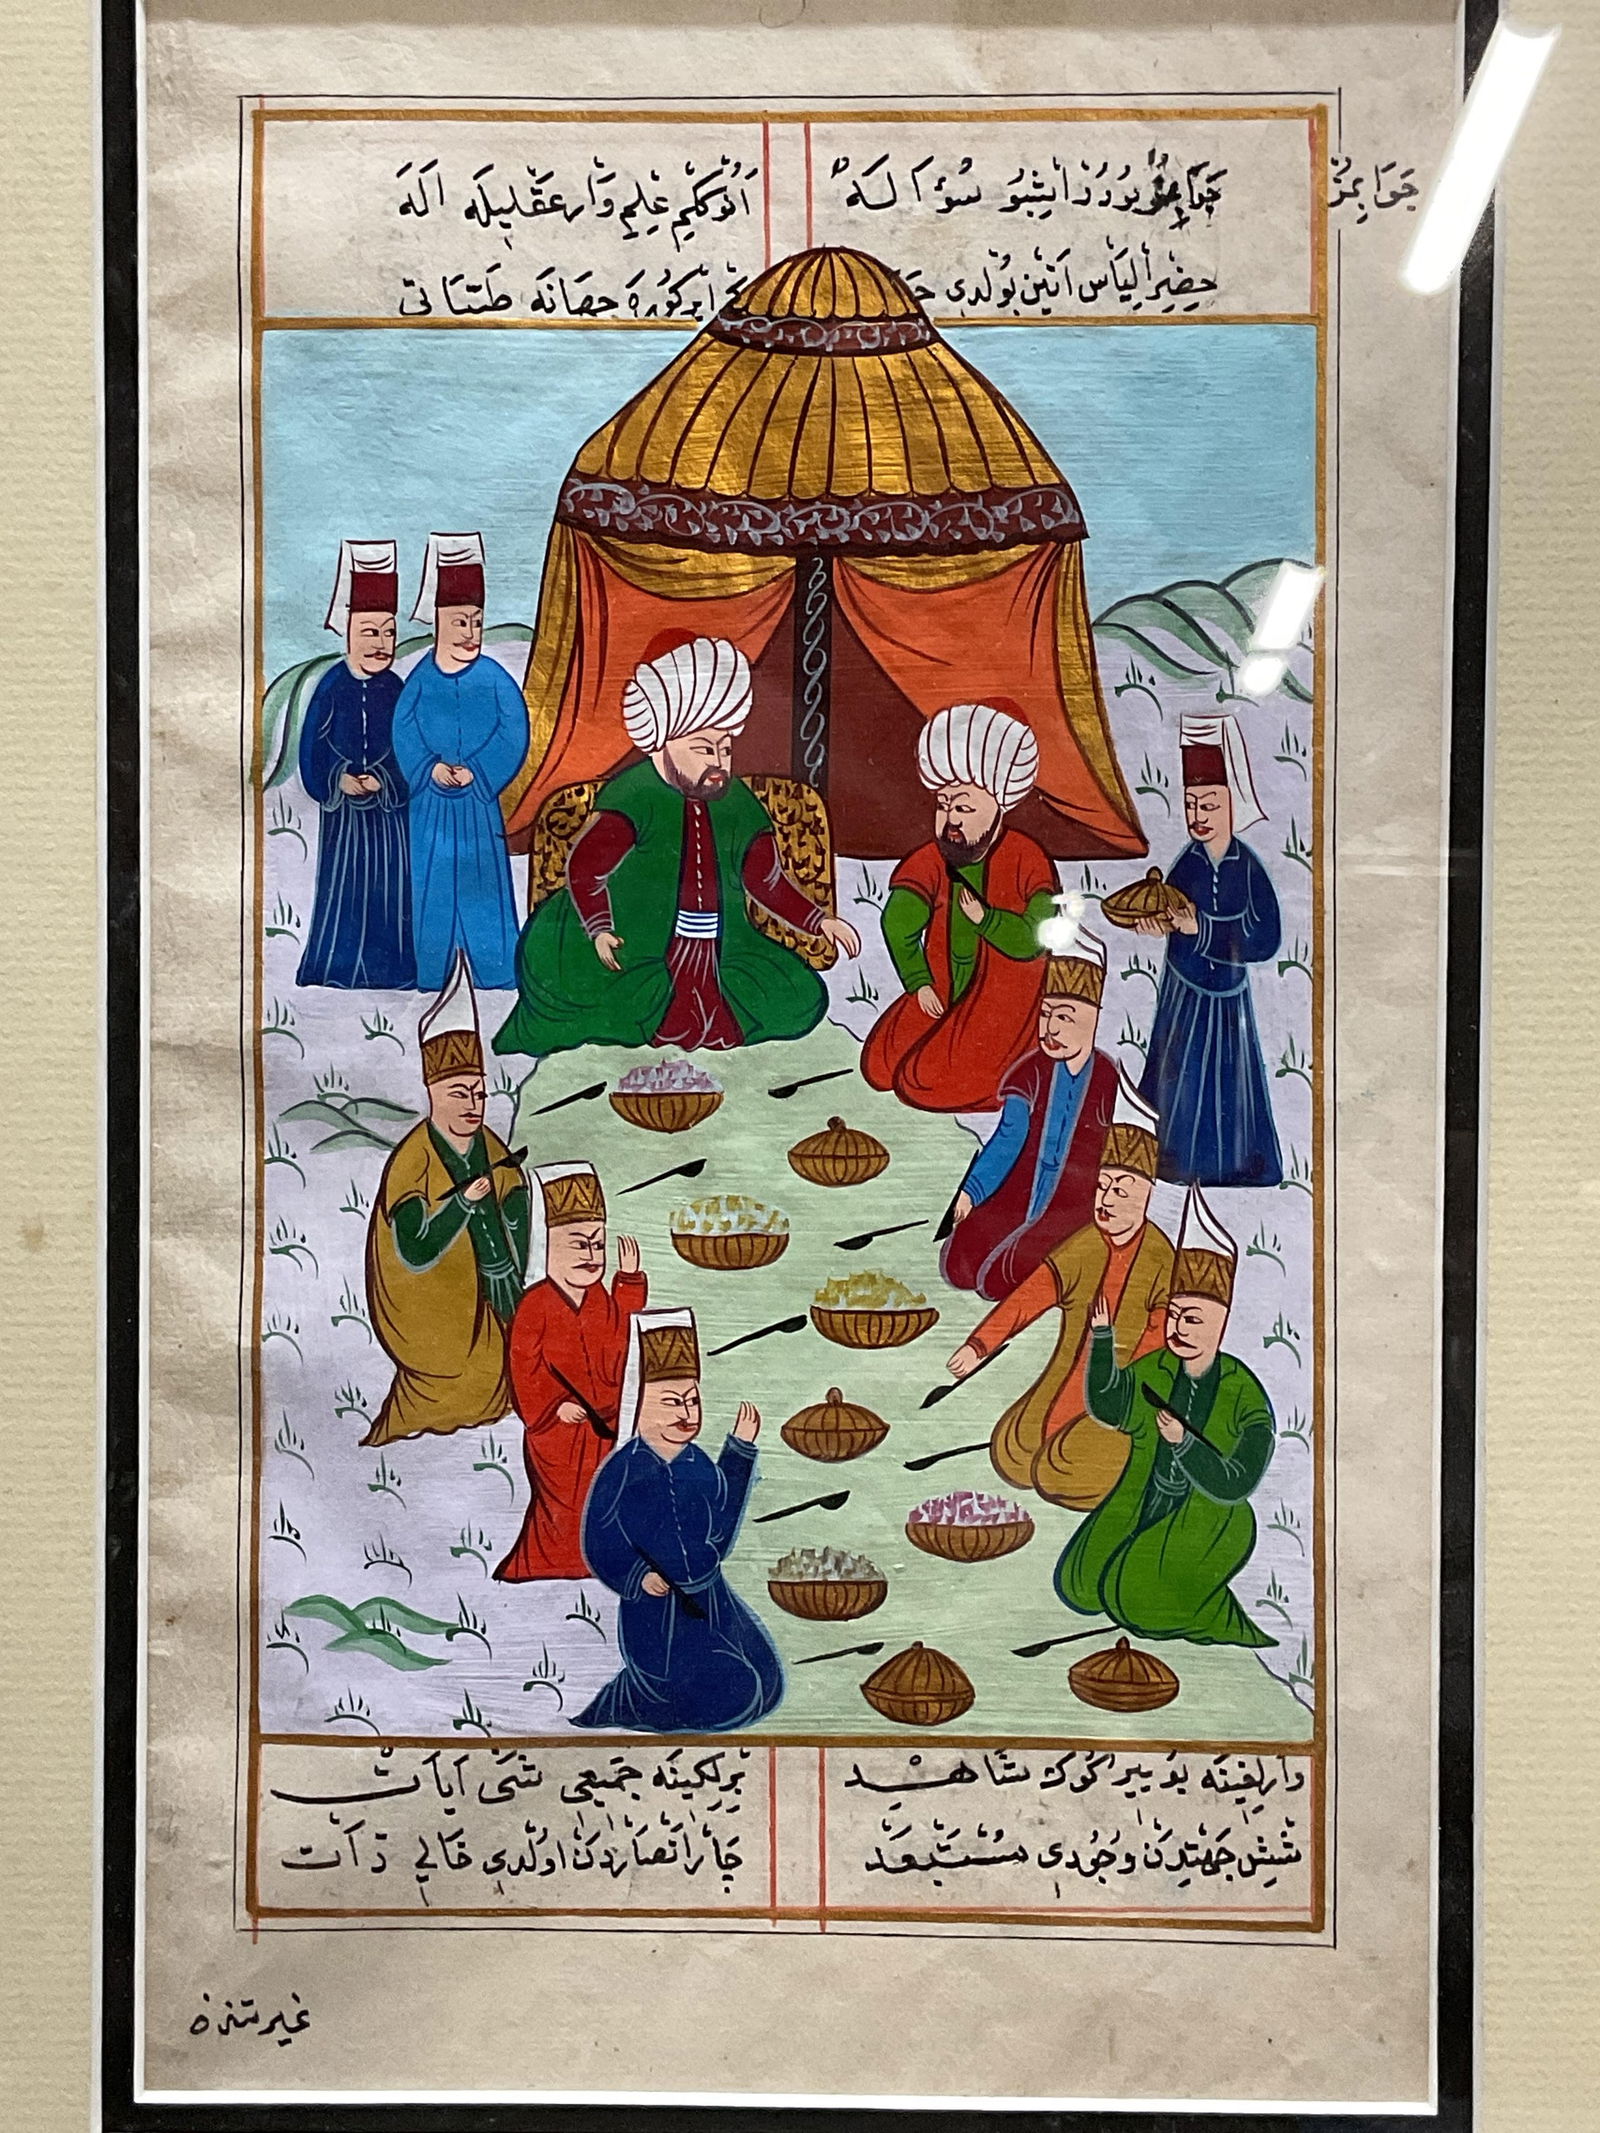 جوابمز
جوابمز بودر ایشبو سؤاله انوککیم علمی وار عقلیله اله
حضر الیاس اتین بولدی کورە حصانه طتاتی
وارلغینه بو ییر کوک شاهد برلکینه جمیعی شی ایات
شش جهتدن وجودی مستبعد چار انصاردن اولدی خالی ذات
غیر تنزه